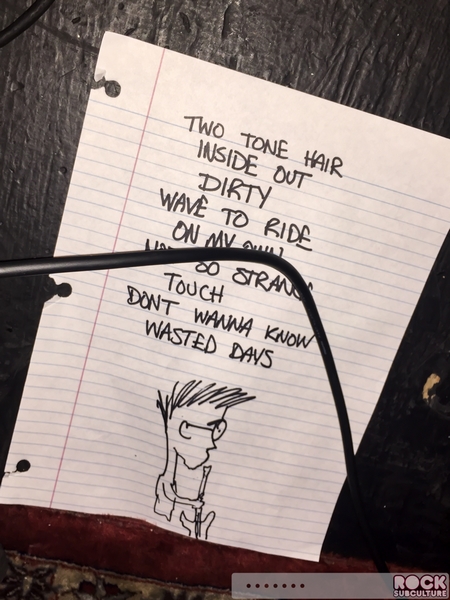 TWO TONE HAIR
INSIDE OUT
DIRTY
WAVE TO RIDE
ON MY OWN
SO STRANGE
TOUCH
DONT WANNA KNOW
WASTED DAYS
ROCK
SUBCULTURE